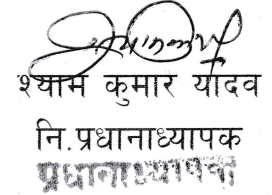 श्याम कुमार यादव
नि. प्रधानाध्यापक
प्रधानाध्यापक